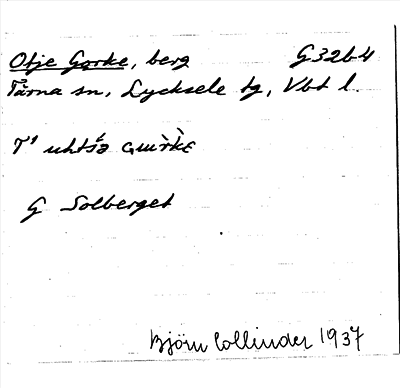 Otje Gorke, berg G32b4
Tärna sn, Lycksele tg, Vbt l.
G Solberget
Björn Collinder 1937